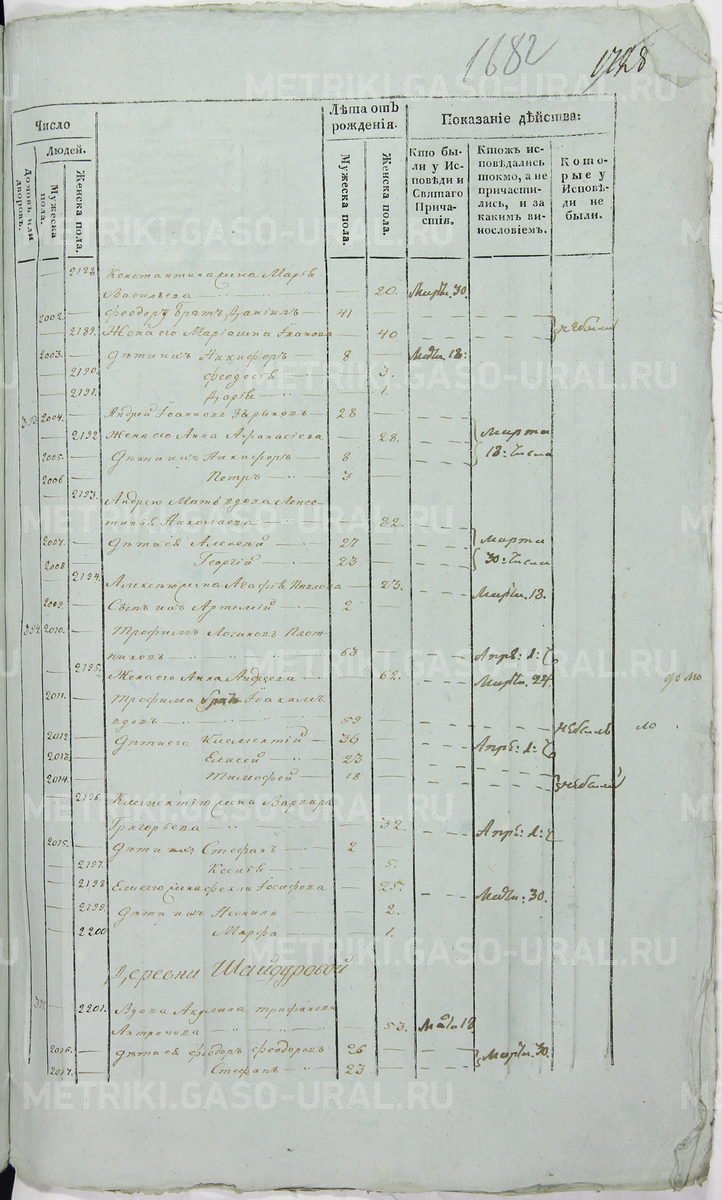 1682 1728
Число
Людей.
Домовъ или дворовъ.
Мужеска пола.
Женска пола.
Лѣта отъ рожденія.
Мужеска пола.
Женска пола.
Показаніе дѣйства:
Кто бы-
ли у Ис-
повѣди и
Святаго
Прича-
стія.
Ктожъ ис-
повѣдались
токмо, а не
причасти-
лись, и за
какимъ ви-
нословіемъ.
Кото-
рые у
Исповѣ-
ди не
были.
2188 Константина жена Марія
Васильева 20. Март. 30.
2002. Феодоръ братъ Даніилъ 41
2189. Жена его Маріамна Іванова 40 небыли
2003. Дѣти ихъ Никифоръ 8 Март. 18:
2190. Феодосія 3.
2191. Дарія 1.
393 2004. Андрей Іоанновъ Зыряновъ 28
2192 Жена его Анна Афанасіева 28. Марта
2005. Дѣти ихъ Никифоръ 8 18: Числа
2006. Петръ 3
2193. Андрею Мать вдова
Николаева 82.
2007. Дѣти ея Алексей 27 Марта
2008 Георгій 23 30: Числа
2194. Алексею жена Агафія 23. Март. 18.
2009. Сынъ ихъ Артемій 2
394 2010. Трофимъ Логиновъ Плот-
никовъ 63 Апрѣ: 1:
2195. Жена его Анна Андреева 62. Март. 24.
2011. Трофима братъ Іоакимъ
вдовъ 59 небылъ
2012 Дѣти его Климентій 36 Апрѣ: 1:
2013. Елисей 23
2014. Тимофей 18 небыли
2196. Климентію жена Варвара
Григорьева 32. Апрѣ: 1:
2015. Дѣти ихъ Стефанъ 2
2197. Ксенія 5.
2198. Елисею жена Фекла Іосифова 25. Март. 30.
2199. Дѣти ихъ Неонила 2.
2200 Марфа 1.
Деревни Шайдуровой
395 2201. Вдова Акулина Трифанова
Антропова 53. Март. 18
2016. Дѣти ея Феодоръ Феодоровъ 26 Март. 30.
2017. Стефанъ 23